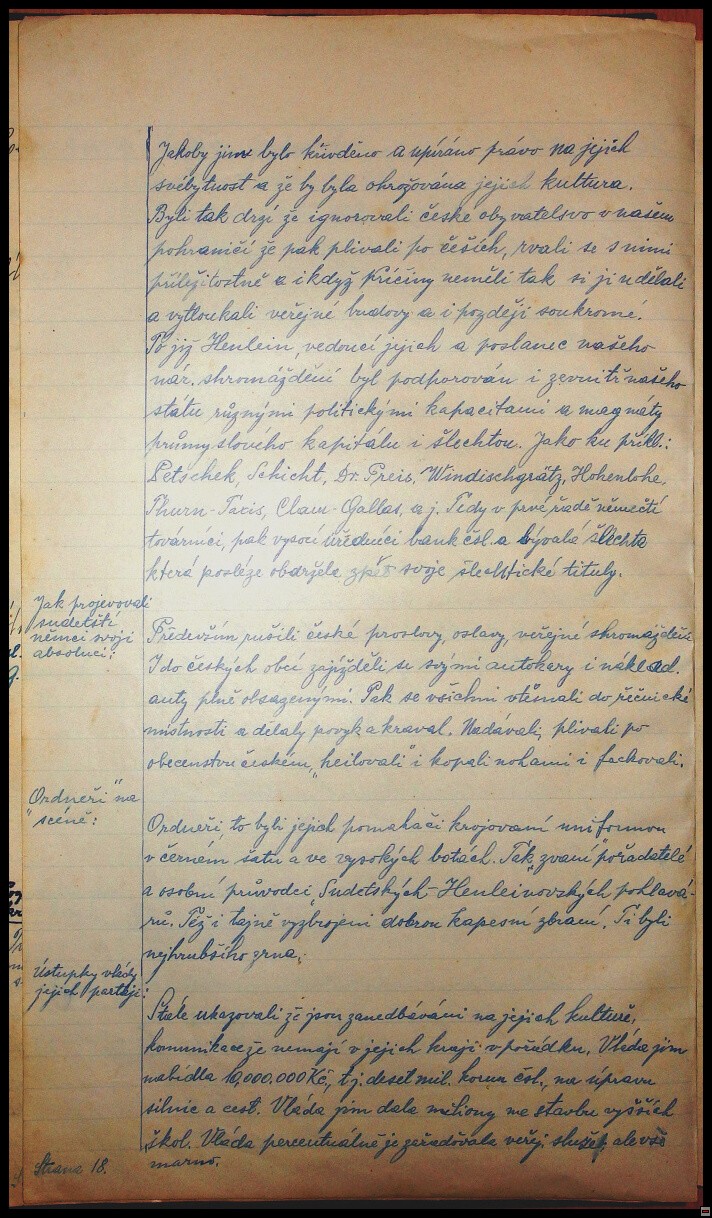 Jakoby jim bylo křivděno a upíráno právo na jejich
svébytnost a že by byla ohrožována jejich kultura.
Byli tak drzí že ignorovali české obyvatelsvo v našem
pohraničí že pak plivali po češích, rvali se s nimi
příležitostně a i když příčiny neměli tak si ji udělali
a vytloukali veřejné budovy a i později soukromé.
To již Henlein, vedoucí jejich a poslanec našeho
nár. shromáždění byl podporován i zevnitř našeho
státu různými politickými kapacitami a magnáty
průmyslového kapitálu i šlechtou. Jako ku příkl.:
Petschek, Schicht, Dr. Preis, Windischgrätz, Hohenlohe,
Thurn-Taxis, Clam-Gallas, a j. Tedy v prvé řadě němečtí
továrníci, pak vysocí úředníci bank čsl. a bývalá šlechta
která posléze obdržela zpět svoje šlechtické tituly.
Jak projevovali
sudetští
němci svoji
absoluci:
Především rušili české proslovy, oslavy, veřejné shromáždění
I do českých obcí zajížděli se svými autokary i náklad.
auty plně obsazenými. Pak se všichni vtěsnali do řečnické
místnosti a dělaly povyk a kraval. Nadávali, plivali po
obecenstvu českém, „heilovali" i kopali nohami i fackovali.
Ordneři" na
"scéně:
Ordneři, to byli jejich pomahači krojovaní uniformou
v černém šatu a ve vysokých botách. Tak „zvaní" pořadatelé
a osobní průvodci „Sudetských-Henleinovských pohlavá-
rů. Též i tajně vyzbrojeni dobrou kapesní zbraní. Ti byli
nejhrubšího zrna.
Ústupky vlády
jejich partaji:
Stále ukazovali že jsou zanedbáváni na jejich kultuře,
komunikace že nemají v jejich kraji v pořádku. Vláda jim
nabídla 10,000.000 Kč, t.j. deset mil. korun čsl., na úpravu
silnic a cest. Vláda jim dala miliony na stavbu vyšších
škol. Vláda percentuálně je zařaďovala veřej. služeb, ale vše
marno.
Strana 18.